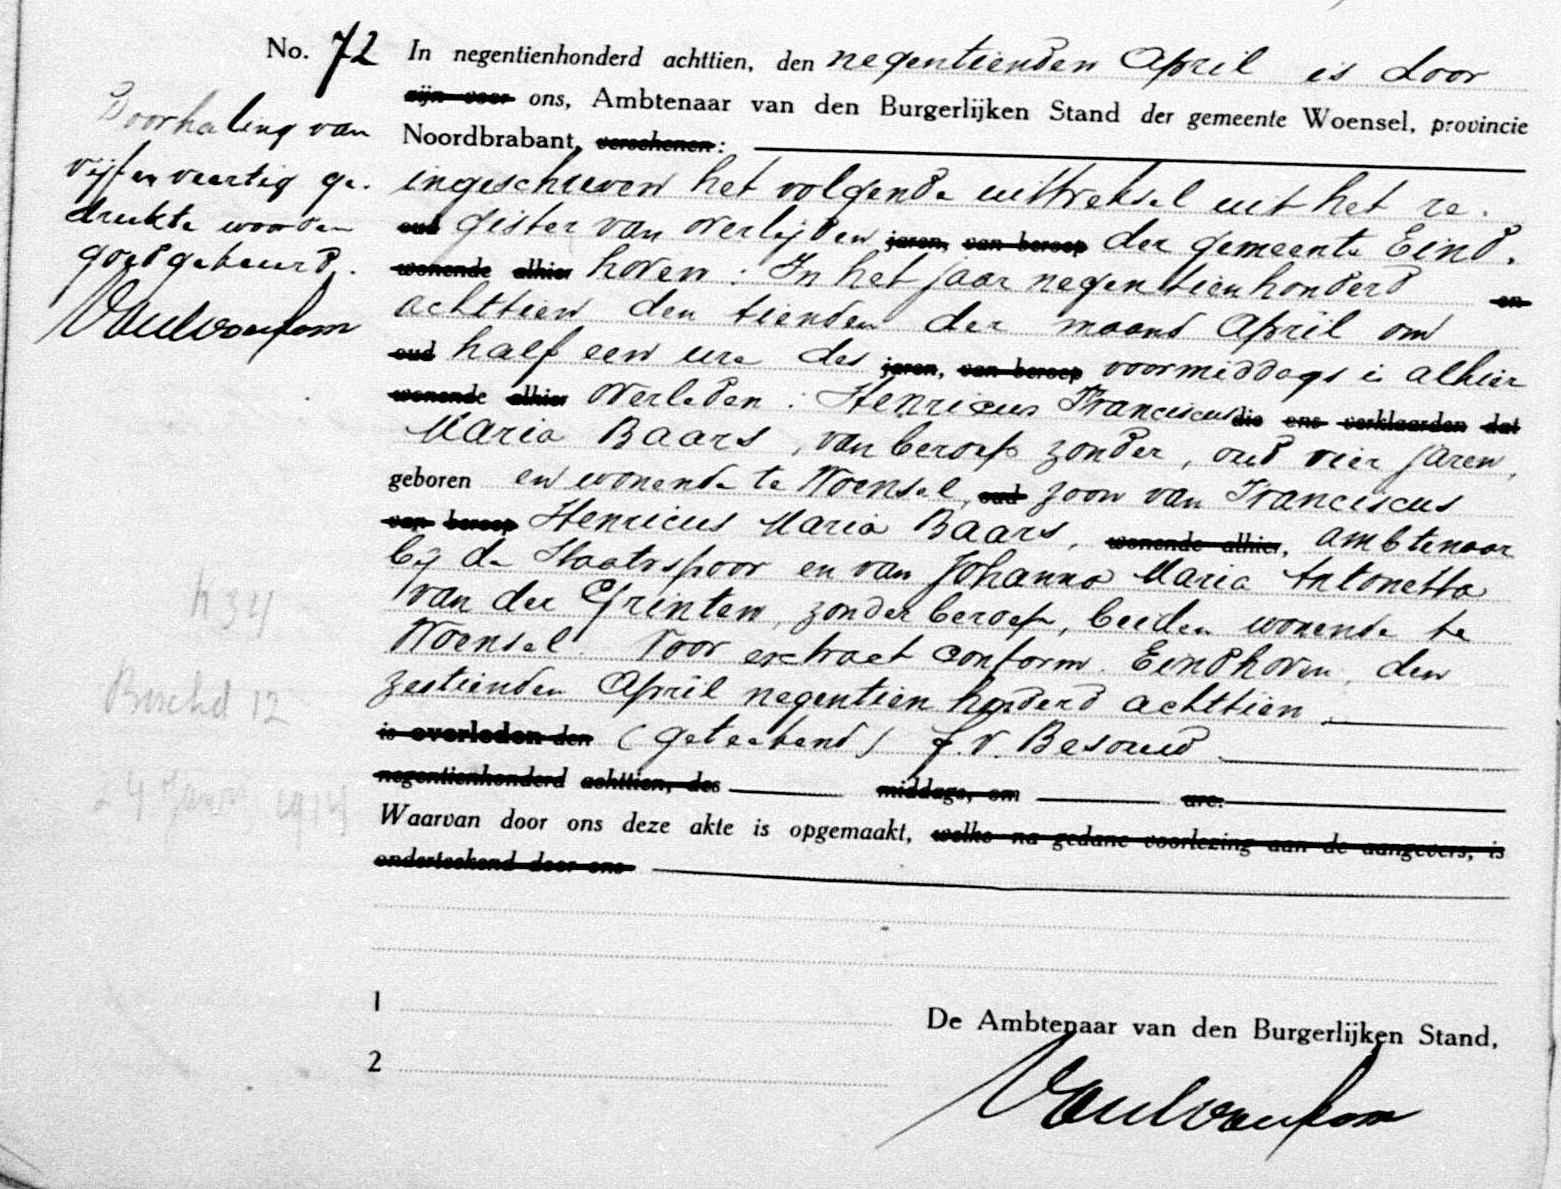 No. 72 In negentienhonderd achttien, den negentienden April is door
zijn voor ons, Ambtenaar van den Burgerlijken Stand der gemeente Woensel, provincie
Noordbrabant, verschenen:
ingeschreven het volgende uittreksel uit het re-
oud gister van overlijden jaren, van beroep der gemeente Eind-
wonende alhier hoven: In het jaar negentienhonderd en
achttien den tienden der maand April om
oud half een ure des jaren, van beroep voormiddags is alhier
wonende alhier overleden: Henricus Franciscus die ons verklaarden dat
Maria Baars, van beroep zonder, oud vier jaren,
geboren en wonende te Woensel, oud zoon van Franciscus
van beroep Henricus Maria Baars, wonende alhier, ambtenaar
bij de Staatsspoor en van Johanna Maria Antonetta
van der Grinten, zonder beroep, beiden wonende te
Woensel. Voor extract conform. Eindhoven, den
zestienden April negentienhonderd achttien
is overleden den (geteekend) J. v. Besouw
negentienhonderd achttien, des middags, om ure.
Waarvan door ons deze akte is opgemaakt, welke na gedane voorlezing aan de aangevers, is
onderteekend door ons
Doorhaling van
vijfenveertig ge-
drukte woorden
goedgekeurd.
h 34
12
24 1914
1
2
De Ambtenaar van den Burgerlijken Stand,